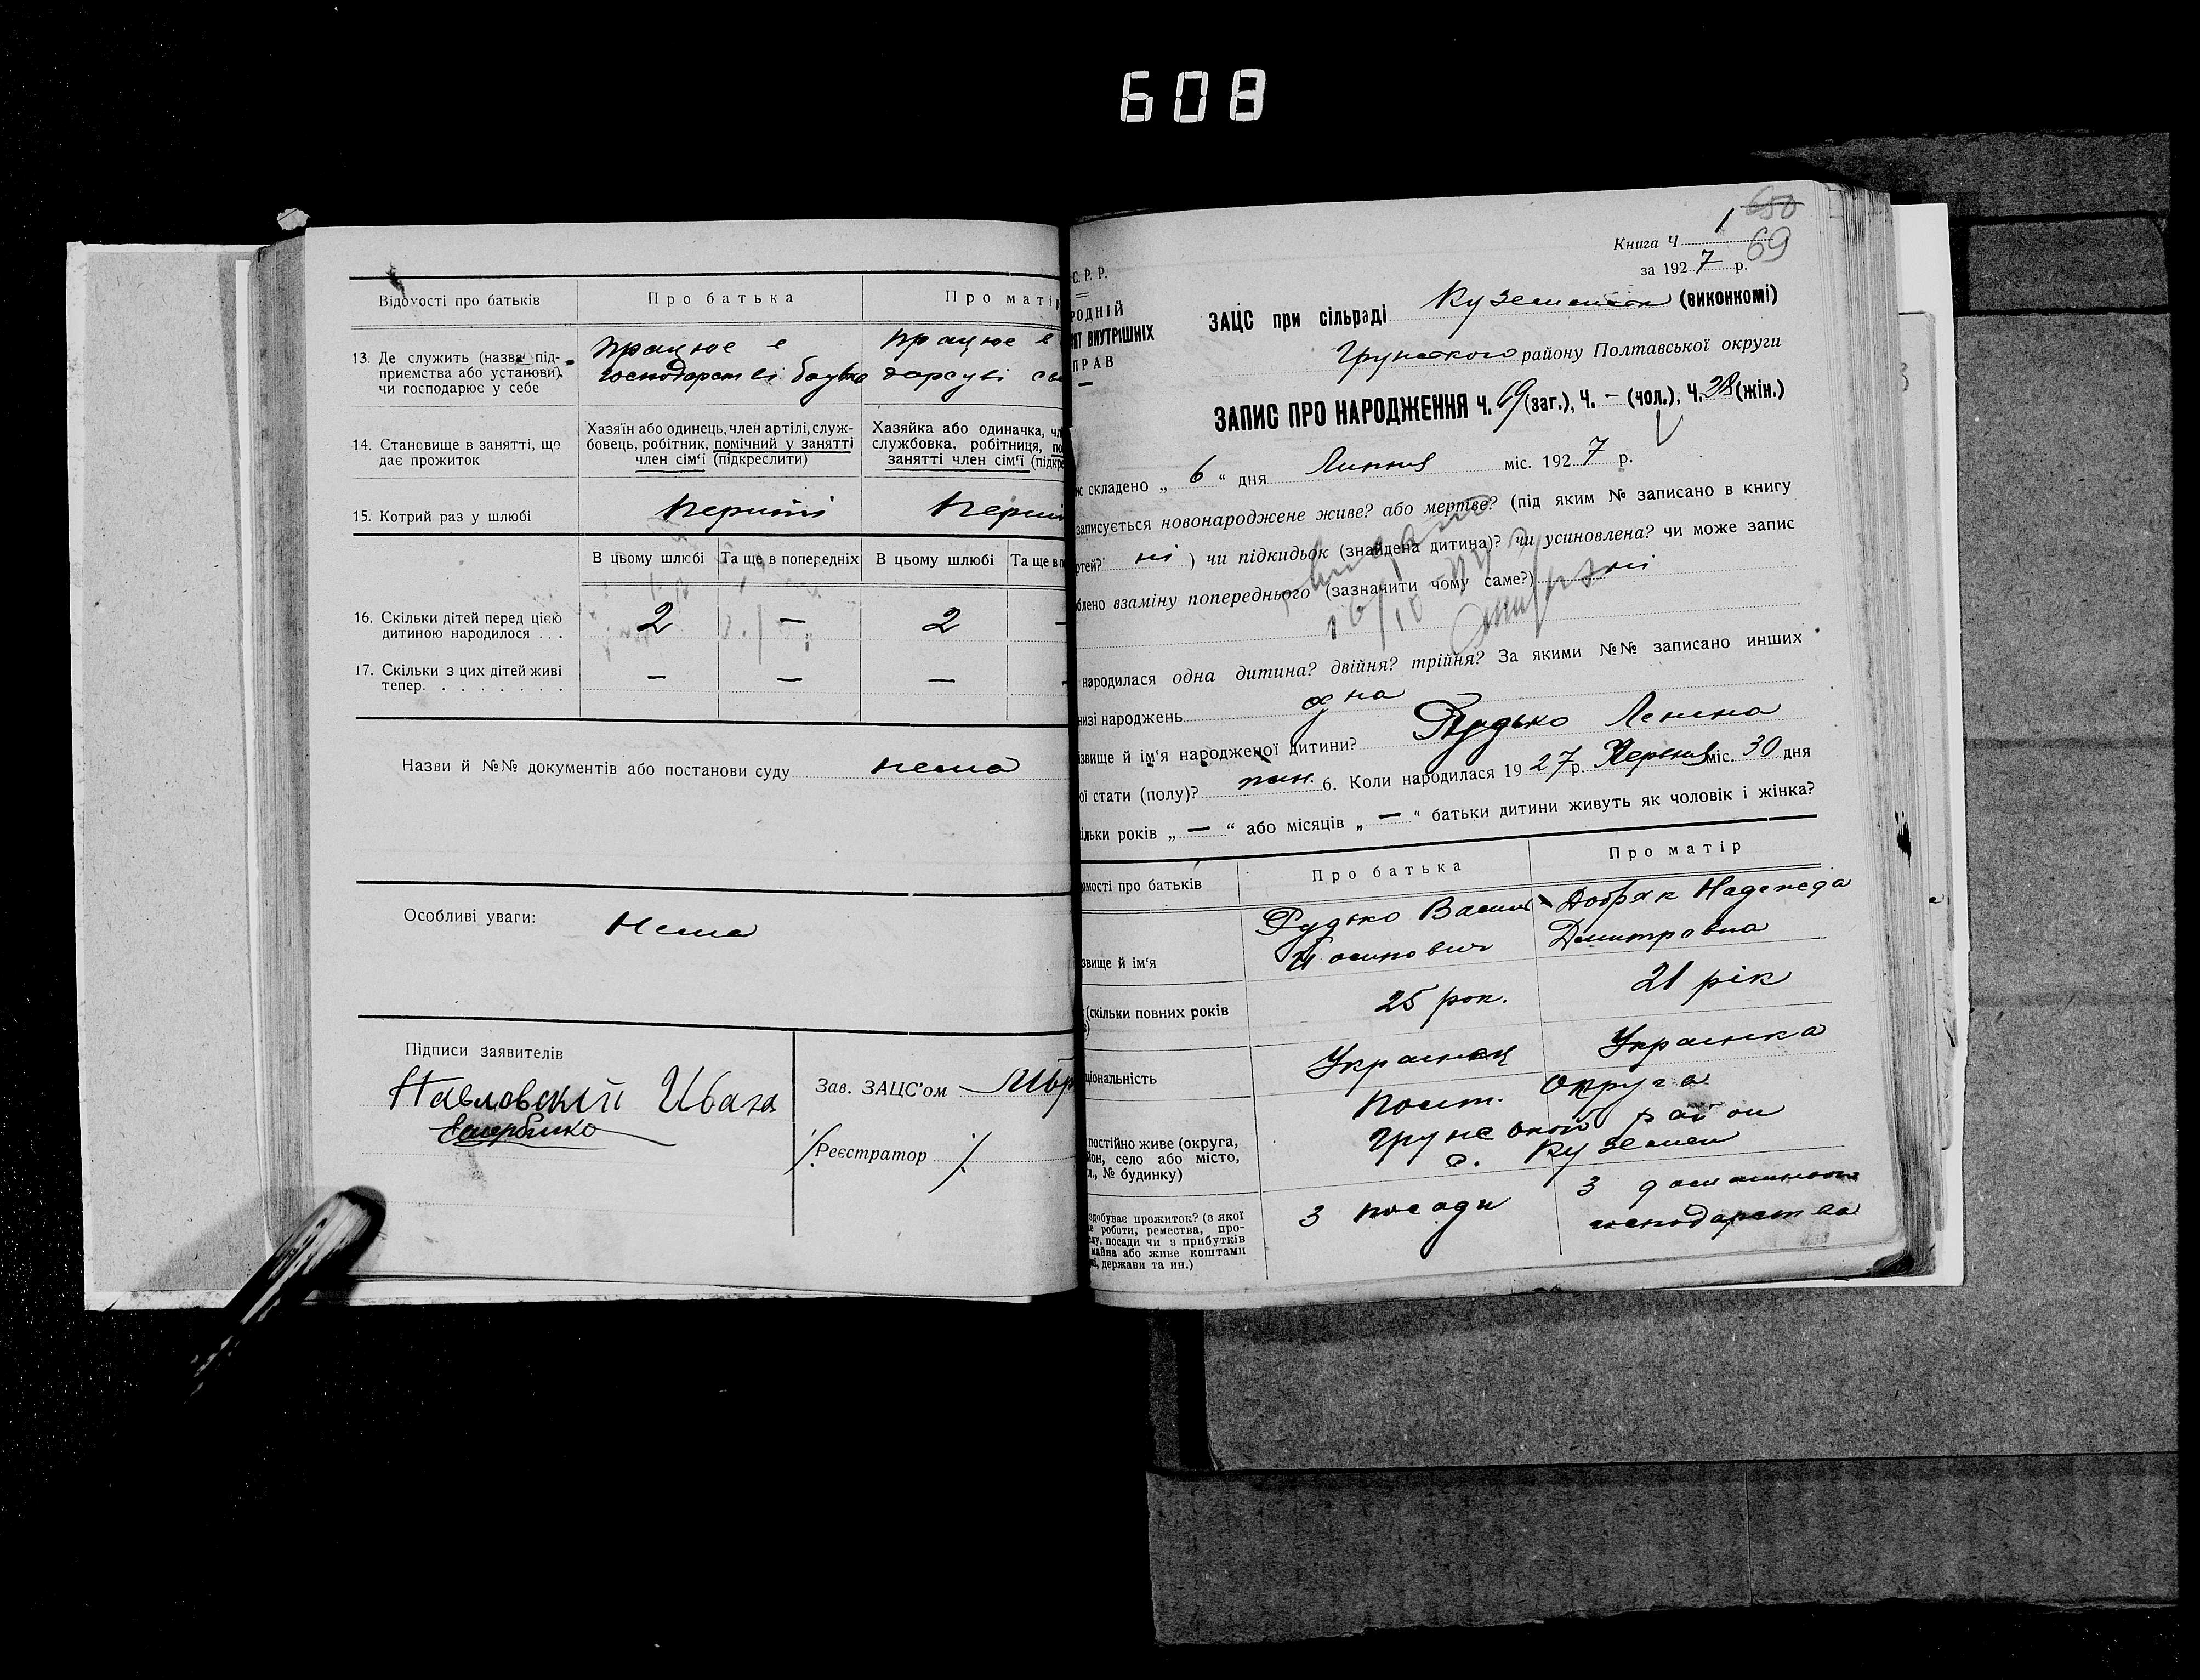 608
Відомості про батьків
Про батька
Про матір
13. Де служить (назва під-
приємства або установи),
чи господарює у себе
працює в
господарстві батька
працює в
14. Становище в занятті, що
дає прожиток
Хазяїн або одинець, член артілі, служ-
бовець, робітник, помічний у занятті
член сім‘ї (підкреслити)
Хазяйка або одиначка, чл
службовка, робітниця, по
занятті член сім‘ї (підкре
15. Котрий раз у шлюбі
перший
перш
В цьому шлюбі
Та ще в попередніх
В цьому шлюбі
Та ще в п
16. Скільки дітей перед цією
дитиною народилося . . .
2
—
2
—
17. Скільки з цих дітей живі
тепер. . . . . . . .
—
—
—
—
Назви й №№ документів або постанови суду нема
Особливі уваги: Нема
Підписи заявителів
Павловскій Ивана
Зав. ЗАЦС’ом
Реєстратор
650
Книга Ч 1
69
за 1927 р.
С. Р. Р.
РОДНІЙ
ВНУТРІШНІХ
ПРАВ
ЗАЦС при сільраді (виконкомі)
Грунського району Полтавської округи
ЗАПИС ПРО НАРОДЖЕННЯ ч. 69 (заг.), ч. – (чол.), ч. 28 (жін.)
ис складено „ 6 “ дня Липня міс. 1927 р.
записується новонароджене живе? або мертве? (під яким № записано в книгу
ртей? ні ) чи підкидьок (знайдена дитина)? чи усиновлена? чи може запис
блено взаміну попереднього (зазначити чому саме?) ні
народилася одна дитина? двійня? трійня? За якими №№ записано инших
низі народжень одна
звище й ім‘я народженої дитини? Рудько Леніна
ої стати (полу)? жін. 6. Коли народилася 1927 р. Червня міс. 30 дня
ільки років „ — “ або місяців „ — “ батьки дитини живуть як чоловік і жінка?
омості про батьків
Про батька
Про матір
звище й ім‘я
Рудько Василь
Йосипович
Добряк Надежда
Дмитровна
(скільки повних років
25 рок.
21 рік
ціональність
Українец
Українка
постійно живе (округа,
йон, село або місто,
л., № будинку)
Полт. округа
Грунський район
с. Куземен
здобуває прожиток? (з якої
е роботи, ремества, про-
слу, посади чи з прибутків
майна або живе коштами
ні, держави та ин.)
З посади
З
господарства